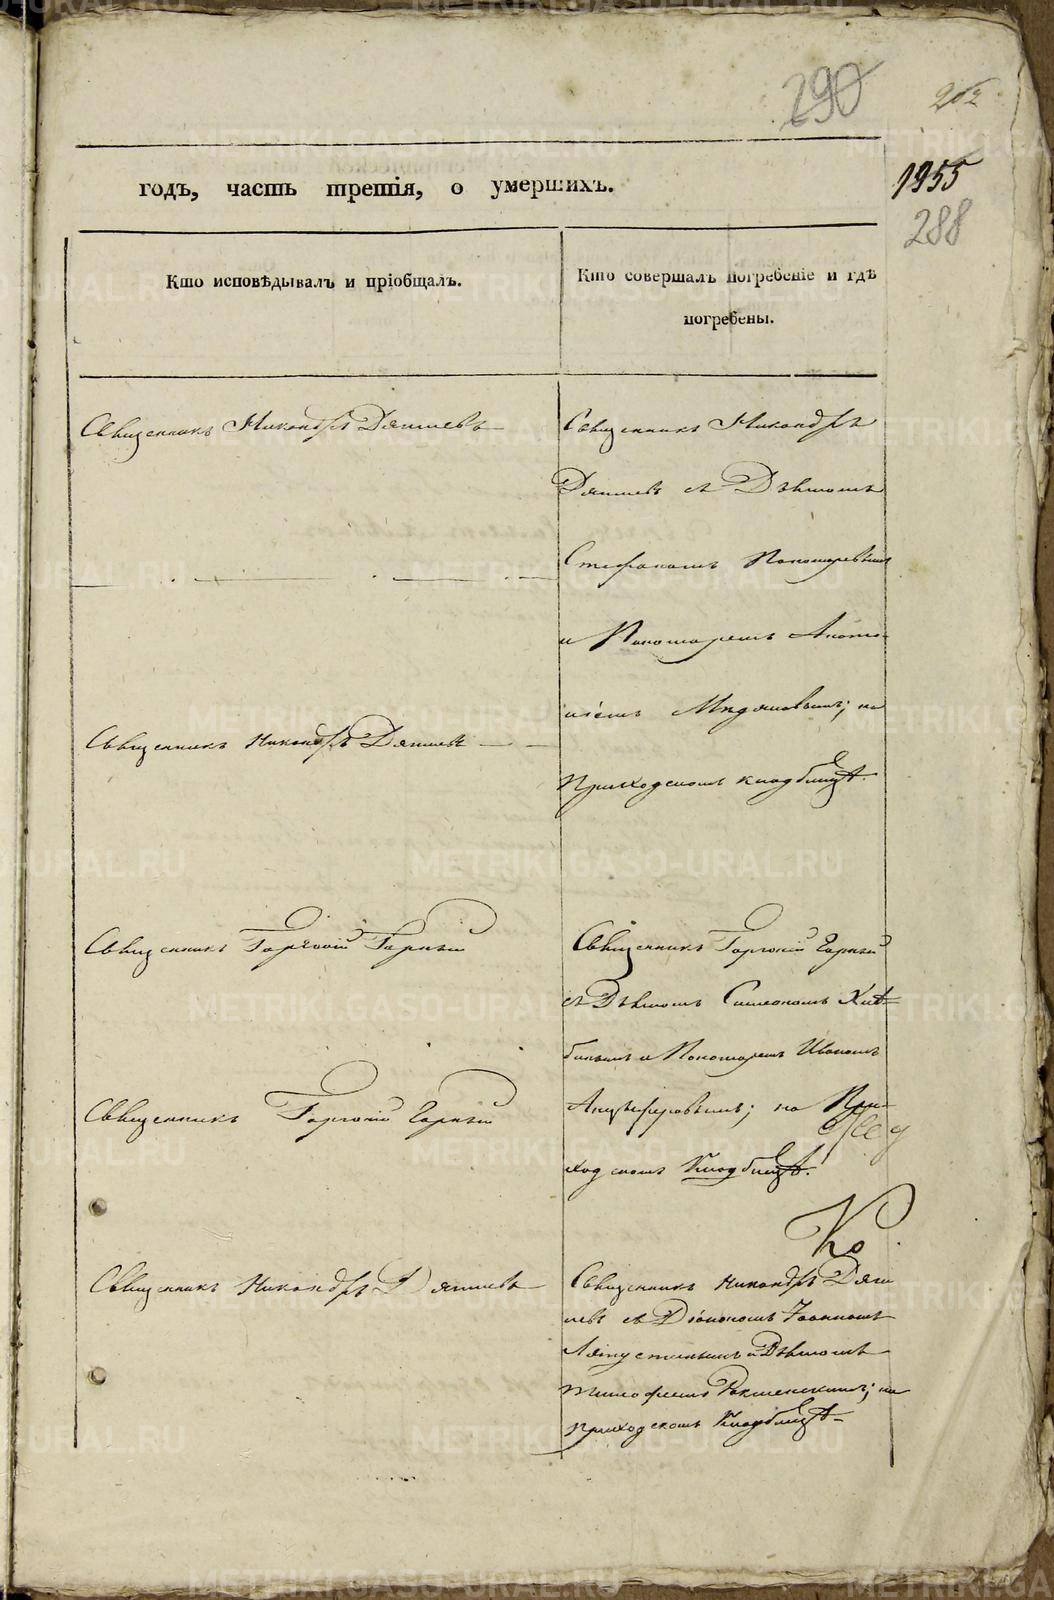 290
1955
288
годъ, часть третія, о умершихъ.
Кто исповѣдывалъ и пріобщалъ.
Кто совершалъ погребеніе и гдѣ
погребены.
Священникъ Никандръ Дягилевъ
Священникъ Никандръ
Дягилевъ съ Дьячкомъ
Стефаномъ Пономаревымъ
и Пономаремъ
на
Приходскомъ кладбищѣ.
Священникъ Никандръ Дягилевъ
Священникъ Горгоній Горный
Священникъ Горгоній Горный
съ Дьячкомъ Симеономъ Хлѣ-
бинымъ и Пономаремъ Иваномъ
Анцыферовымъ; на При-
ходскомъ Кладбищѣ.
Священникъ Горгоній Горный
Ко
Священникъ Никандръ Дягилевъ
Священникъ Никандръ Дяги
левъ съ Діакономъ Іоанномъ
и Дьячкомъ
на
приходскомъ Кладбищѣ
METRIKI.GASO-URAL.RU